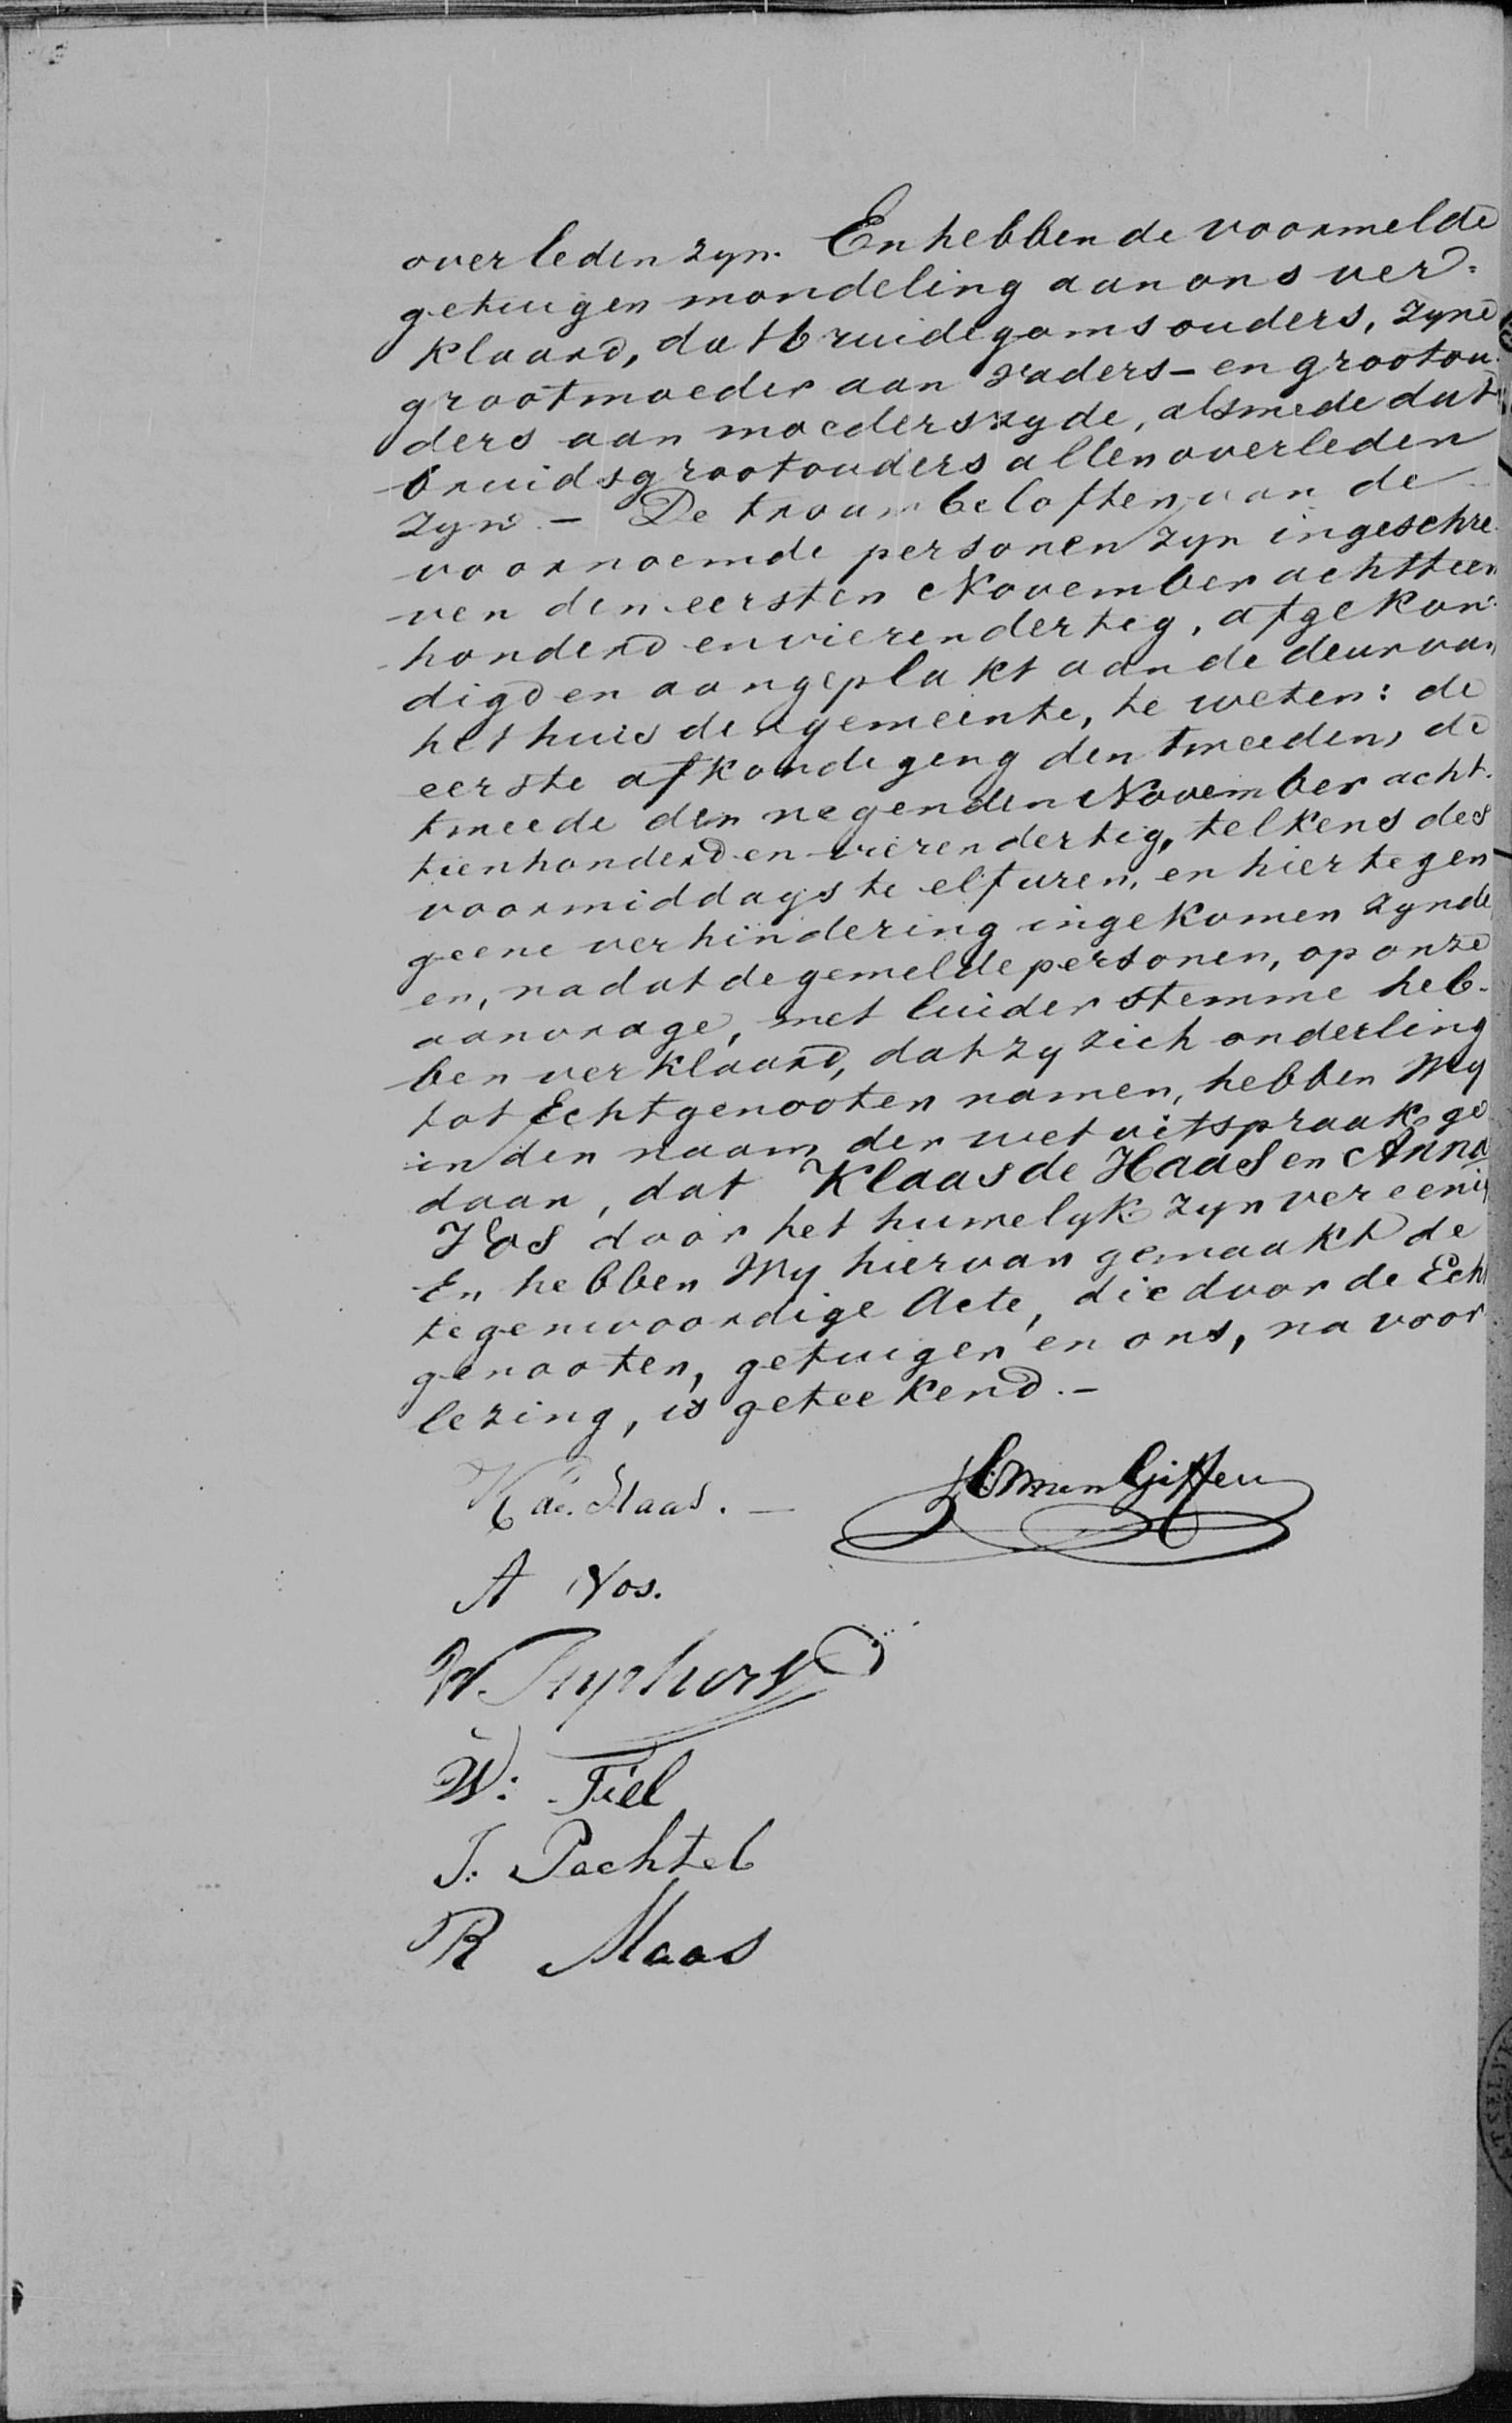 overleden zyn. En hebben de voormelde
getuigen mondeling aan ons ver-
klaard, dat bruidegoms ouders, zyne
grootmoeder aan vaders- en grootou-
ders aan moederszyde, alsmede dat
bruids grootouders allen overleden
zyn. - De trouwbeloften van de
voornoemde personen zyn ingeschre-
ven den eersten November achttien
honderd en vierendertig, afgekon-
digd en aangeplakt aan de deur van
het huis der gemeente, te weten: de
eerste afkondiging den tweeden, de
tweede den negenden November acht-
tienhonderd en vierendertig, telkens des
voormiddags te elf uren, en hiertegen
geene verhindering ingekomen zynde
en, nadat de gemelde personen, op onze
aanvrage, met luider stemme heb-
ben verklaard, dat zy zich onderling
tot Echtgenooten namen, hebben Wy
in den naam der wet uitspraak ge
daan, dat Klaas de Haas en Anna
Vos door het huwelyk zyn vereenig
En hebben Wy hiervan gemaakt de
tegenwoordige Acte, die door de Echt
genooten, getuigen en ons, na voor
lezing, is geteekend. -
K de Haas. - van Giffen
A Vos.
W.
W: Tiel
J. Pachtel
R Maas